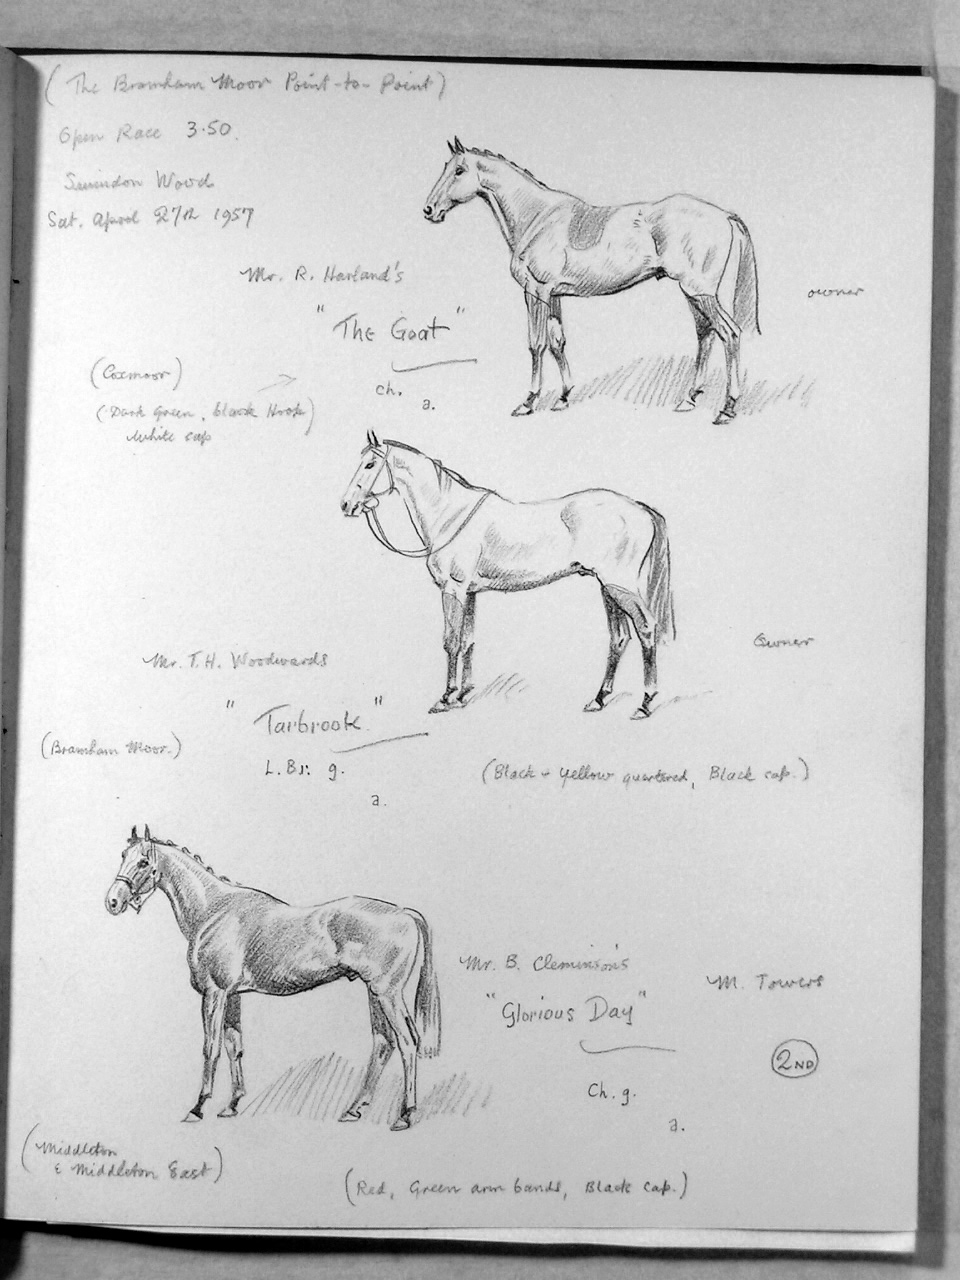 (The Bramham Moor Point-to-Point)
Open Race 3.50.
Swindon Wood
Sat. April 27th 1957
Mr. R. Harland's
owner
"The Goat"
(Coxmoor)
ch.
a.
(Dark Green, black Hoop)
white cap
Owner
Mr. T. H. Woodwards
"Tarbrook"
(Bramham Moor.)
L. Br. g.
(Black + yellow quartered, Black cap.)
a.
Mr. B. Cleminson's
M. Towers
"Glorious Day"
2ND
Ch. g.
a.
(Middleton
& Middleton East)
(Red, Green arm bands, Black cap.)